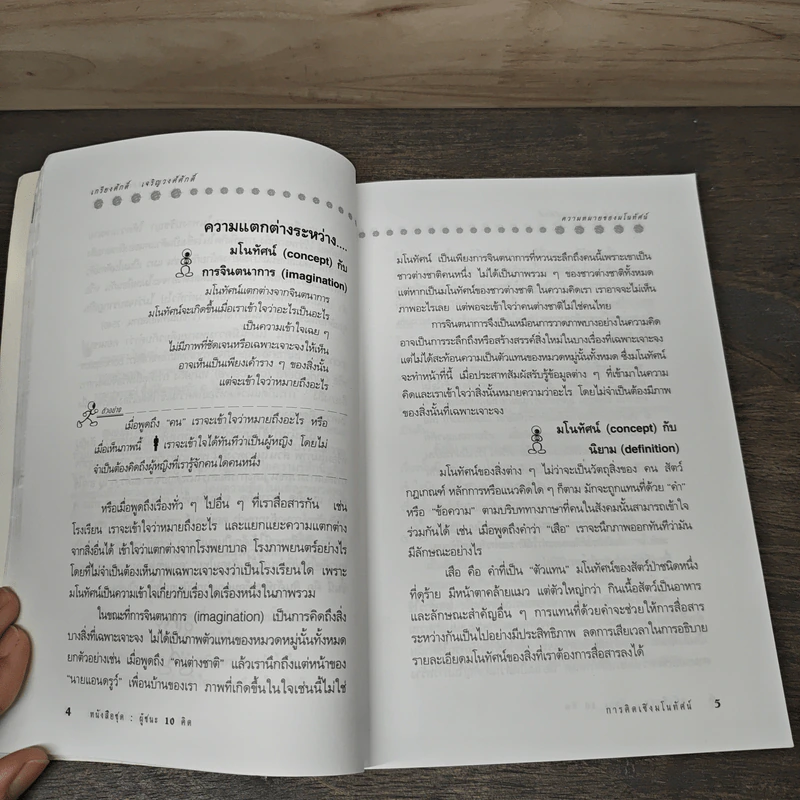 เกรียงศักดิ์ เจริญวงศ์ศักดิ์
ความแตกต่างระหว่าง....
มโนทัศน์ (concept) กับ
การจินตนาการ (imagination)
มโนทัศน์แตกต่างจากจินตนาการ
มโนทัศน์จะเกิดขึ้นเมื่อเราเข้าใจว่าอะไรเป็นอะไร
เป็นความเข้าใจเฉย ๆ
ไม่มีภาพที่ชัดเจนหรือเฉพาะเจาะจงให้เห็น
อาจเห็นเป็นเพียงเค้าราง ๆ ของสิ่งนั้น
แต่จะเข้าใจว่าหมายถึงอะไร
ตัวอย่าง
เมื่อพูดถึง "คน" เราจะเข้าใจว่าหมายถึงอะไร หรือ
เมื่อเห็นภาพนี้ เราจะเข้าใจได้ทันทีว่าเป็นผู้หญิง โดยไม่
จำเป็นต้องคิดถึงผู้หญิงที่เรารู้จักคนใดคนหนึ่ง
หรือเมื่อพูดถึงเรื่องทั่ว ๆ ไปอื่น ๆ ที่เราสื่อสารกัน เช่น
โรงเรียน เราจะเข้าใจว่าหมายถึงอะไร และแยกแยะความแตกต่าง
จากสิ่งอื่นได้ เข้าใจว่าแตกต่างจากโรงพยาบาล โรงภาพยนตร์อย่างไร
โดยที่ไม่จำเป็นต้องเห็นภาพเฉพาะเจาะจงว่าเป็นโรงเรียนใด เพราะ
มโนทัศน์เป็นความเข้าใจเกี่ยวกับเรื่องใดเรื่องหนึ่งในภาพรวม
ในขณะที่การจินตนาการ (imagination) เป็นการคิดถึงสิ่ง
บางสิ่งที่เฉพาะเจาะจง ไม่ได้เป็นภาพตัวแทนของหมวดหมู่นั้นทั้งหมด
ยกตัวอย่างเช่น เมื่อพูดถึง "คนต่างชาติ" แล้วเรานึกถึงแต่หน้าของ
"นายแอนดรูว์" เพื่อนบ้านของเรา ภาพที่เกิดขึ้นในใจเช่นนี้ไม่ใช่
4 หนังสือชุด : ผู้ชนะ 10 คิด
ความหมายของมโนทัศน์
มโนทัศน์ เป็นเพียงการจินตนาการที่หวนระลึกถึงคนนี้เพราะเขาเป็น
ชาวต่างชาติคนหนึ่ง ไม่ได้เป็นภาพรวม ๆ ของชาวต่างชาติทั้งหมด
แต่หากเป็นมโนทัศน์ของชาวต่างชาติ ในความคิดเรา เราอาจจะไม่เห็น
ภาพอะไรเลย แต่พอจะเข้าใจว่าคนต่างชาติไม่ใช่คนไทย
การจินตนาการจึงเป็นเหมือนการวาดภาพบางอย่างในความคิด
อาจเป็นการระลึกถึงหรือสร้างสรรค์สิ่งใหม่ในบางเรื่องที่เฉพาะเจาะจง
แต่ไม่ได้สะท้อนความเป็นตัวแทนของหมวดหมู่นั้นทั้งหมด ซึ่งมโนทัศน์
จะทำหน้าที่นี้ เมื่อประสาทสัมผัสรับรู้ข้อมูลต่าง ๆ ที่เข้ามาในความ
คิดและเราเข้าใจว่าสิ่งนั้นหมายความว่าอะไร โดยไม่จำเป็นต้องมีภาพ
ของสิ่งนั้นที่เฉพาะเจาะจง
มโนทัศน์ (concept) กับ
นิยาม (definition)
มโนทัศน์ของสิ่งต่าง ๆ ไม่ว่าจะเป็นวัตถุสิ่งของ คน สัตว์
กฎเกณฑ์ หลักการหรือแนวคิดใด ๆ ก็ตาม มักจะถูกแทนที่ด้วย "คำ"
หรือ "ข้อความ" ตามบริบททางภาษาที่คนในสังคมนั้นสามารถเข้าใจ
ร่วมกันได้ เช่น เมื่อพูดถึงคำว่า "เสือ" เราจะนึกภาพออกทันทีว่ามัน
มีลักษณะอย่างไร
เสือ คือ คำที่เป็น "ตัวแทน" มโนทัศน์ของสัตว์ป่าชนิดหนึ่ง
ที่ดุร้าย มีหน้าตาคล้ายแมว แต่ตัวใหญ่กว่า กินเนื้อสัตว์เป็นอาหาร
และลักษณะสำคัญอื่น ๆ การแทนที่ด้วยคำจะช่วยให้การสื่อสาร
ระหว่างกันเป็นไปอย่างมีประสิทธิภาพ ลดการเสียเวลาในการอธิบาย
รายละเอียดมโนทัศน์ของสิ่งที่เราต้องการสื่อสารลงได้
การคิดเชิงมโนทัศน์ 5